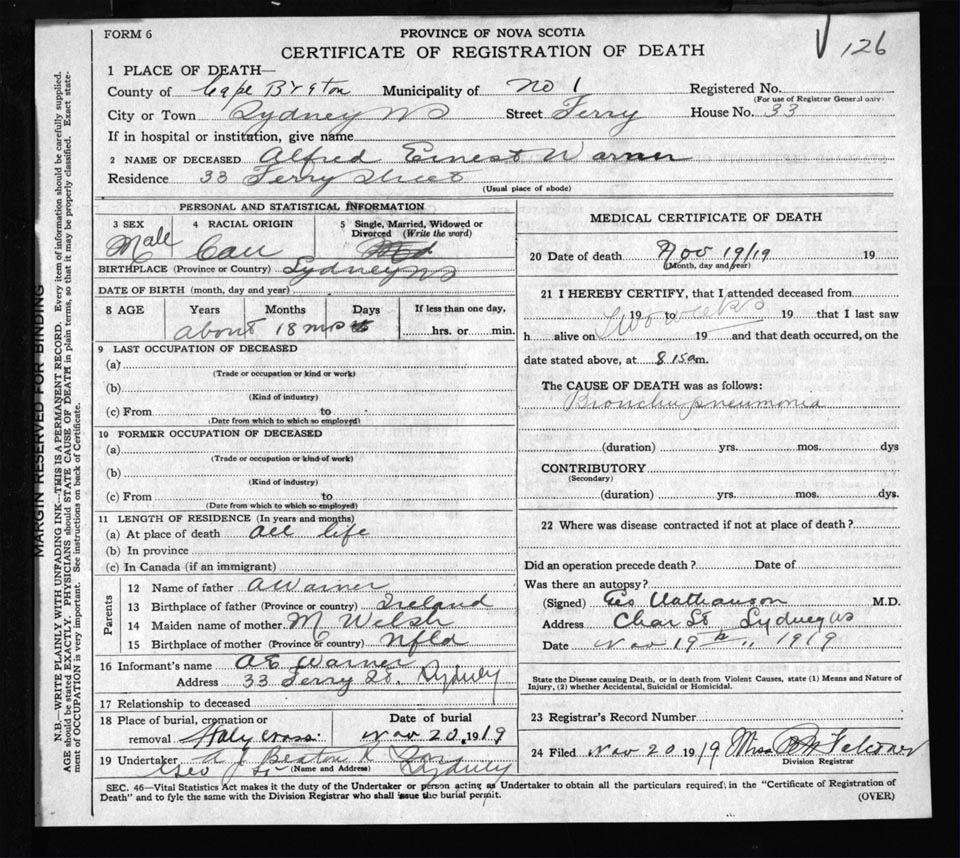 FORM 6
PROVINCE OF NOVA SCOTIA
CERTIFICATE OF REGISTRATION OF DEATH
126
1 PLACE OF DEATH—
County of Cape Breton Municipality of No 1 Registered No.
(For use of Registrar General only)
City or Town Sydney NS Street Ferry House No. 33
If in hospital or institution, give name
2 NAME OF DECEASED Alfred Ernest Warner
Residence 33 Ferry Street
(Usual place of abode)
PERSONAL AND STATISTICAL INFORMATION
3 SEX Male
4 RACIAL ORIGIN Cau
5 Single, Married, Widowed or Divorced (Write the word)
BIRTHPLACE (Province or Country) Sydney NS
DATE OF BIRTH (month, day and year)
8 AGE Years Months Days If less than one day,
about 18 mos hrs. or min.
9 LAST OCCUPATION OF DECEASED
(a)
(Trade or occupation or kind or work)
(b)
(Kind of industry)
(c) From to
(Date from which to which so employed)
10 FORMER OCCUPATION OF DECEASED
(a)
(Trade or occupation or kind of work)
(b)
(Kind of industry)
(c) From to
(Date from which to which so employed)
11 LENGTH OF RESIDENCE (In years and months)
(a) At place of death all life
(b) In province
(c) In Canada (if an immigrant)
Parents
12 Name of father A Warner
13 Birthplace of father (Province or country) Ireland
14 Maiden name of mother M Welsh
15 Birthplace of mother (Province or country) Nfld
16 Informant's name A E Warner
Address 33 Ferry St. Sydney
17 Relationship to deceased
18 Place of burial, cremation or removal Holy Cross
Date of burial Nov 20, 1919
19 Undertaker A J Beaton
(Name and Address) Geo St Sydney
MEDICAL CERTIFICATE OF DEATH
20 Date of death Nov 19/19 19
(Month, day and year)
21 I HEREBY CERTIFY, that I attended deceased from
Two weeks
19 to 19 that I last saw
h alive on 19 and that death occurred, on the
date stated above, at 8 15 a m.
The CAUSE OF DEATH was as follows:
Broncho pneumonia
(duration) yrs. mos. dys
CONTRIBUTORY
(Secondary)
(duration) yrs. mos. dys.
22 Where was disease contracted if not at place of death?
Did an operation precede death? Date of
Was there an autopsy?
(Signed) Nathanson M.D.
Address Char St Sydney NS
Date Nov 19th 1919
State the Disease causing Death, or in death from Violent Causes, state (1) Means and Nature of
Injury, (2) whether Accidental, Suicidal or Homicidal.
23 Registrar's Record Number
24 Filed Nov 20 1919 Miss
Division Registrar
SEC. 46—Vital Statistics Act makes it the duty of the Undertaker or person acting as Undertaker to obtain all the particulars required in the "Certificate of Registration of
Death" and to fyle the same with the Division Registrar who shall issue the burial permit.
(OVER)
MARGIN RESERVED FOR BINDING
N.B.—WRITE PLAINLY WITH UNFADING INK—THIS IS A PERMANENT RECORD. Every item of information should be carefully supplied.
AGE should be stated EXACTLY. PHYSICIANS should STATE CAUSE OF DEATH in plain terms, so that it may be properly classified. Exact state-
ment of OCCUPATION is very important. See instructions on back of Certificate.